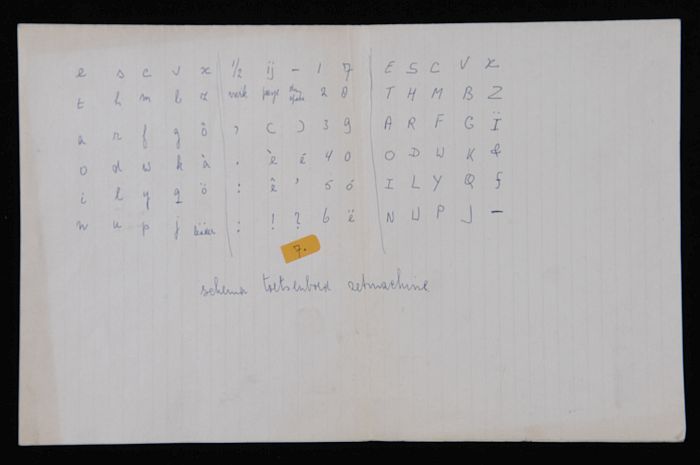 e s c v x ½ ij - 1 7 E S C V X
t h m b z 2 8 T H M B Z
a r f g ô , ( ) 3 9 A R F G Ï
o d w k à . è é 4 0 O D W K &
i l y q ö : ê ' 5 ó I L Y Q
n u p j ; ! ? 6 ë N U P J -
7.
schema toetsenbord zetmachine